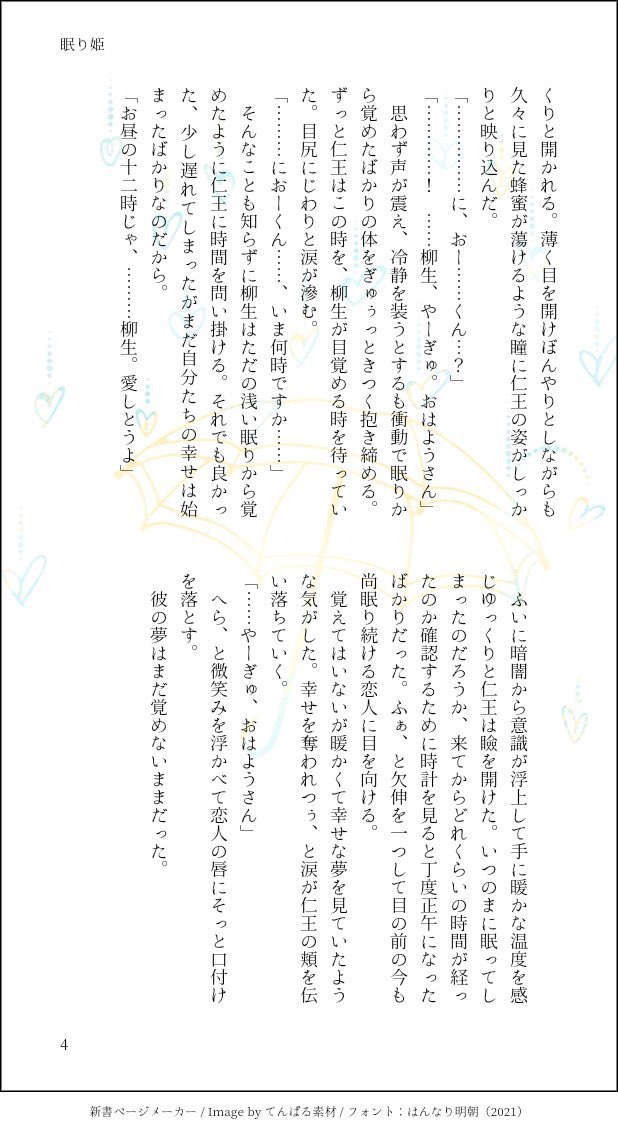 眠り姫
くりと開かれる。薄く目を開けぼんやりとしながらも
久々に見た蜂蜜が蕩けるような瞳に仁王の姿がしっか
りと映り込んだ。
「…………に、おー……くん…？」
「…………！　……柳生、やーぎゅ。おはようさん」
　思わず声が震え、冷静を装うとするも衝動で眠りか
ら覚めたばかりの体をぎゅぅっときつく抱き締める。
ずっと仁王はこの時を、柳生が目覚める時を待ってい
た。目尻にじわりと涙が滲む。
「………におーくん……、いま何時ですか……」
　そんなことも知らずに柳生はただの浅い眠りから覚
めたように仁王に時間を問い掛ける。それでも良かっ
た、少し遅れてしまったがまだ自分たちの幸せは始
まったばかりなのだから。
「お昼の十二時じゃ、………柳生。愛しとうよ」
　ふいに暗闇から意識が浮上して手に暖かな温度を感
じゆっくりと仁王は瞼を開けた。いつのまに眠ってし
まったのだろうか、来てからどれくらいの時間が経っ
たのか確認するために時計を見ると丁度正午になった
ばかりだった。ふぁ、と欠伸を一つして目の前の今も
尚眠り続ける恋人に目を向ける。
　覚えてはいないが暖かくて幸せな夢を見ていたよう
な気がした。幸せを奪われつぅ、と涙が仁王の頬を伝
い落ちていく。
「……やーぎゅ、おはようさん」
　へら、と微笑みを浮かべて恋人の唇にそっと口付け
を落とす。
　彼の夢はまだ覚めないままだった。
4
新書ページメーカー / Image by てんぱる素材 / フォント：はんなり明朝（2021）